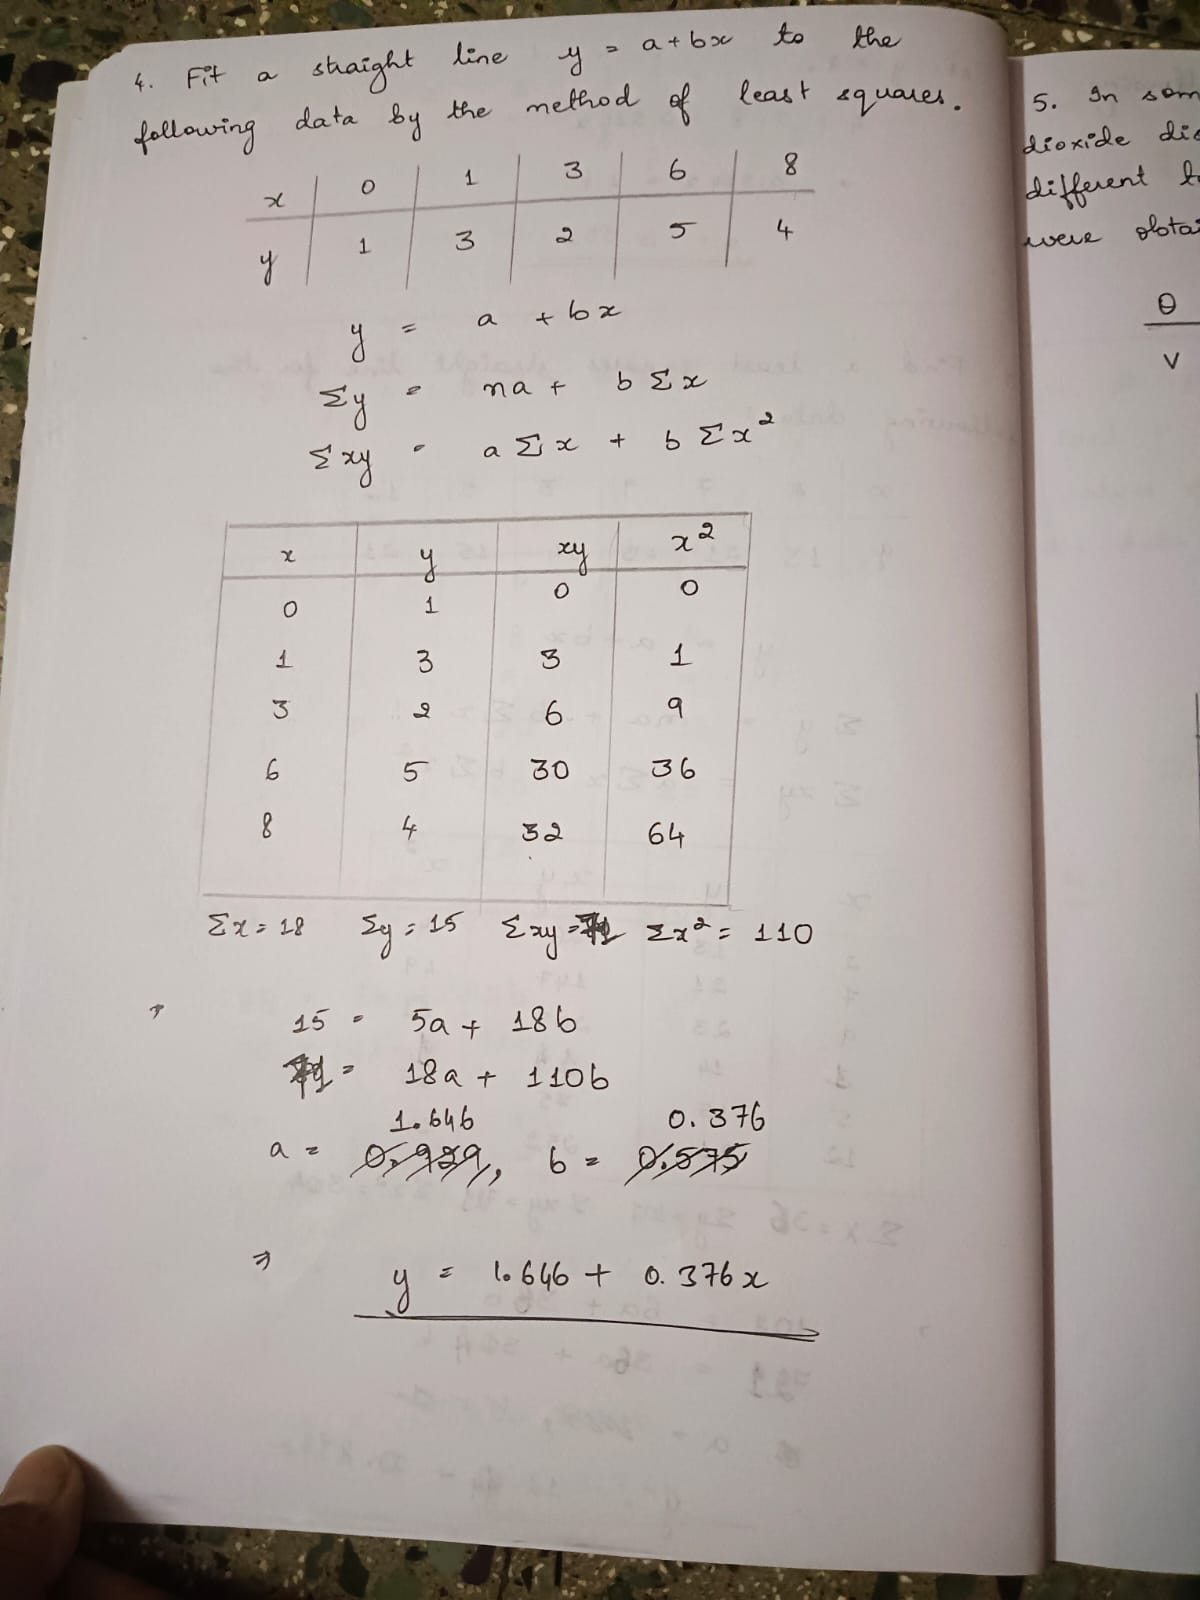 4. Fit a straight line y = a + bx to the
following data by the method of least squares.
x 0 1 3 6 8
y 1 3 2 5 4
y = a + bx
Σy = na + b Σx
Σxy = a Σx + b Σx²
x y xy x²
0 1 0 0
1 3 3 1
3 2 6 9
6 5 30 36
8 4 32 64
Σx = 18 Σy = 15 Σxy = Σx² = 110
⇒ 15 = 5a + 18b
= 18a + 110b
1.646 0.376
a = 0.929, b = 0.575
⇒ y = 1.646 + 0.376x
5. In som
dioxide dis
different t
were obtai
θ
V